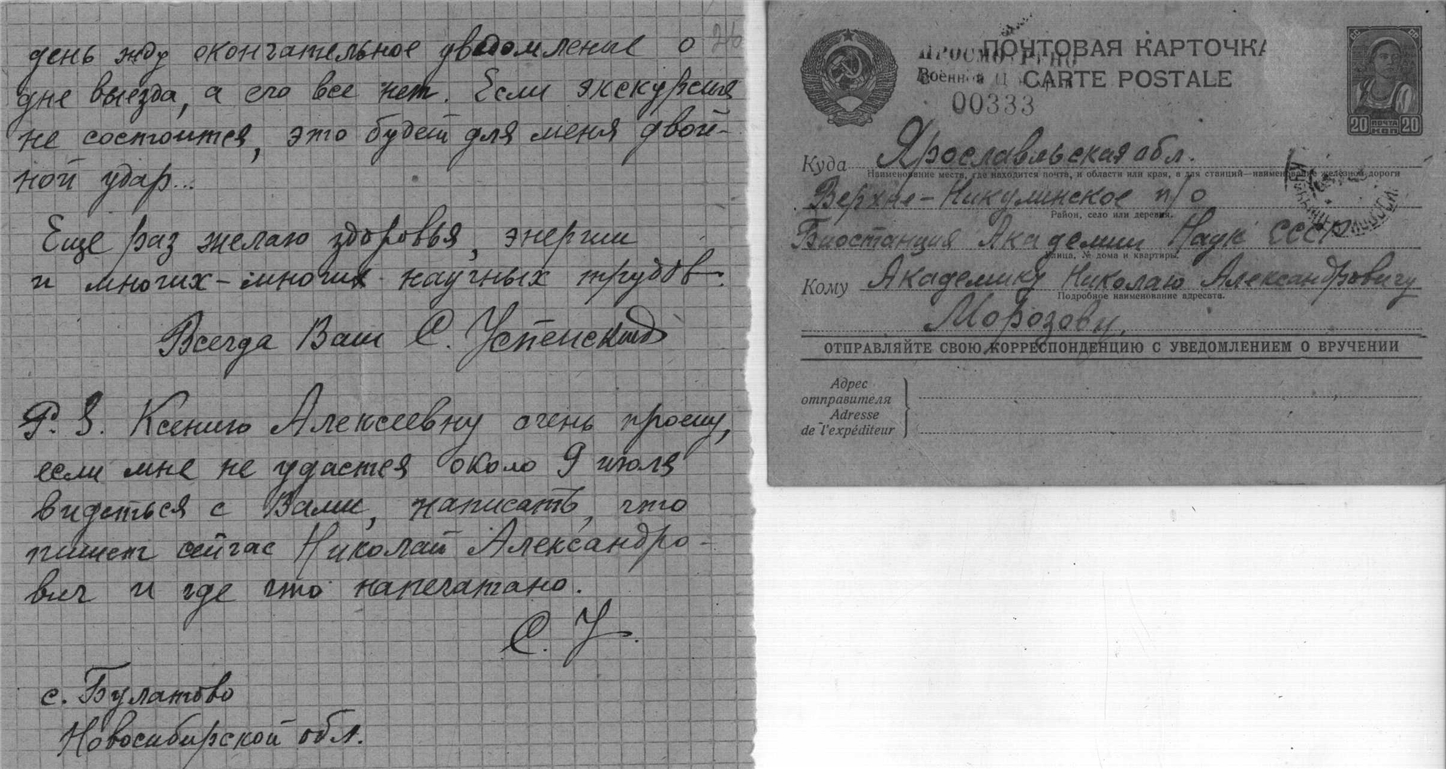 день жду окончательное уведомление о
дне выезда, а его все нет. Если экскурсия
не состоится, это будет для меня двой-
ной удар...
Еще раз желаю здоровья, энергии
и многих-многих научных трудов.
Всегда Ваш С. Успенский
P. S. Ксению Алексеевну очень прошу,
если мне не удастся около 9 июля
видеться с Вами, написать, что
пишет сейчас Николай Александро-
вич и где что напечатано.
С. У.
с. Булатово
Новосибирской обл.
ПРОСМОТРЕНО
Военной
00333
ПОЧТОВАЯ КАРТОЧКА
CARTE POSTALE
20 ПОЧТА 20
КОП
Куда Ярославльская обл.
Наименование места, где находится почта, и области или края, а для станций—наименование железной дороги
Верхне-Никулинское п/о
Район, село или деревня,
Биостанция Академии Наук СССР
улица, № дома и квартиры.
Кому Академику Николаю Александровичу
Подробное наименование адресата.
Морозову.
ОТПРАВЛЯЙТЕ СВОЮ КОРРЕСПОНДЕНЦИЮ С УВЕДОМЛЕНИЕМ О ВРУЧЕНИИ
Адрес
отправителя
Adresse
de l'expéditeur